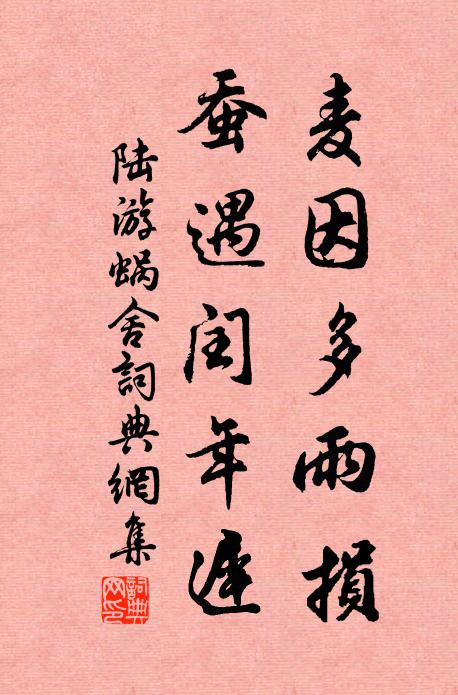 麦因多雨損
蚕遇閏年遲
陆游蜗舍詞典網集
詞典网印